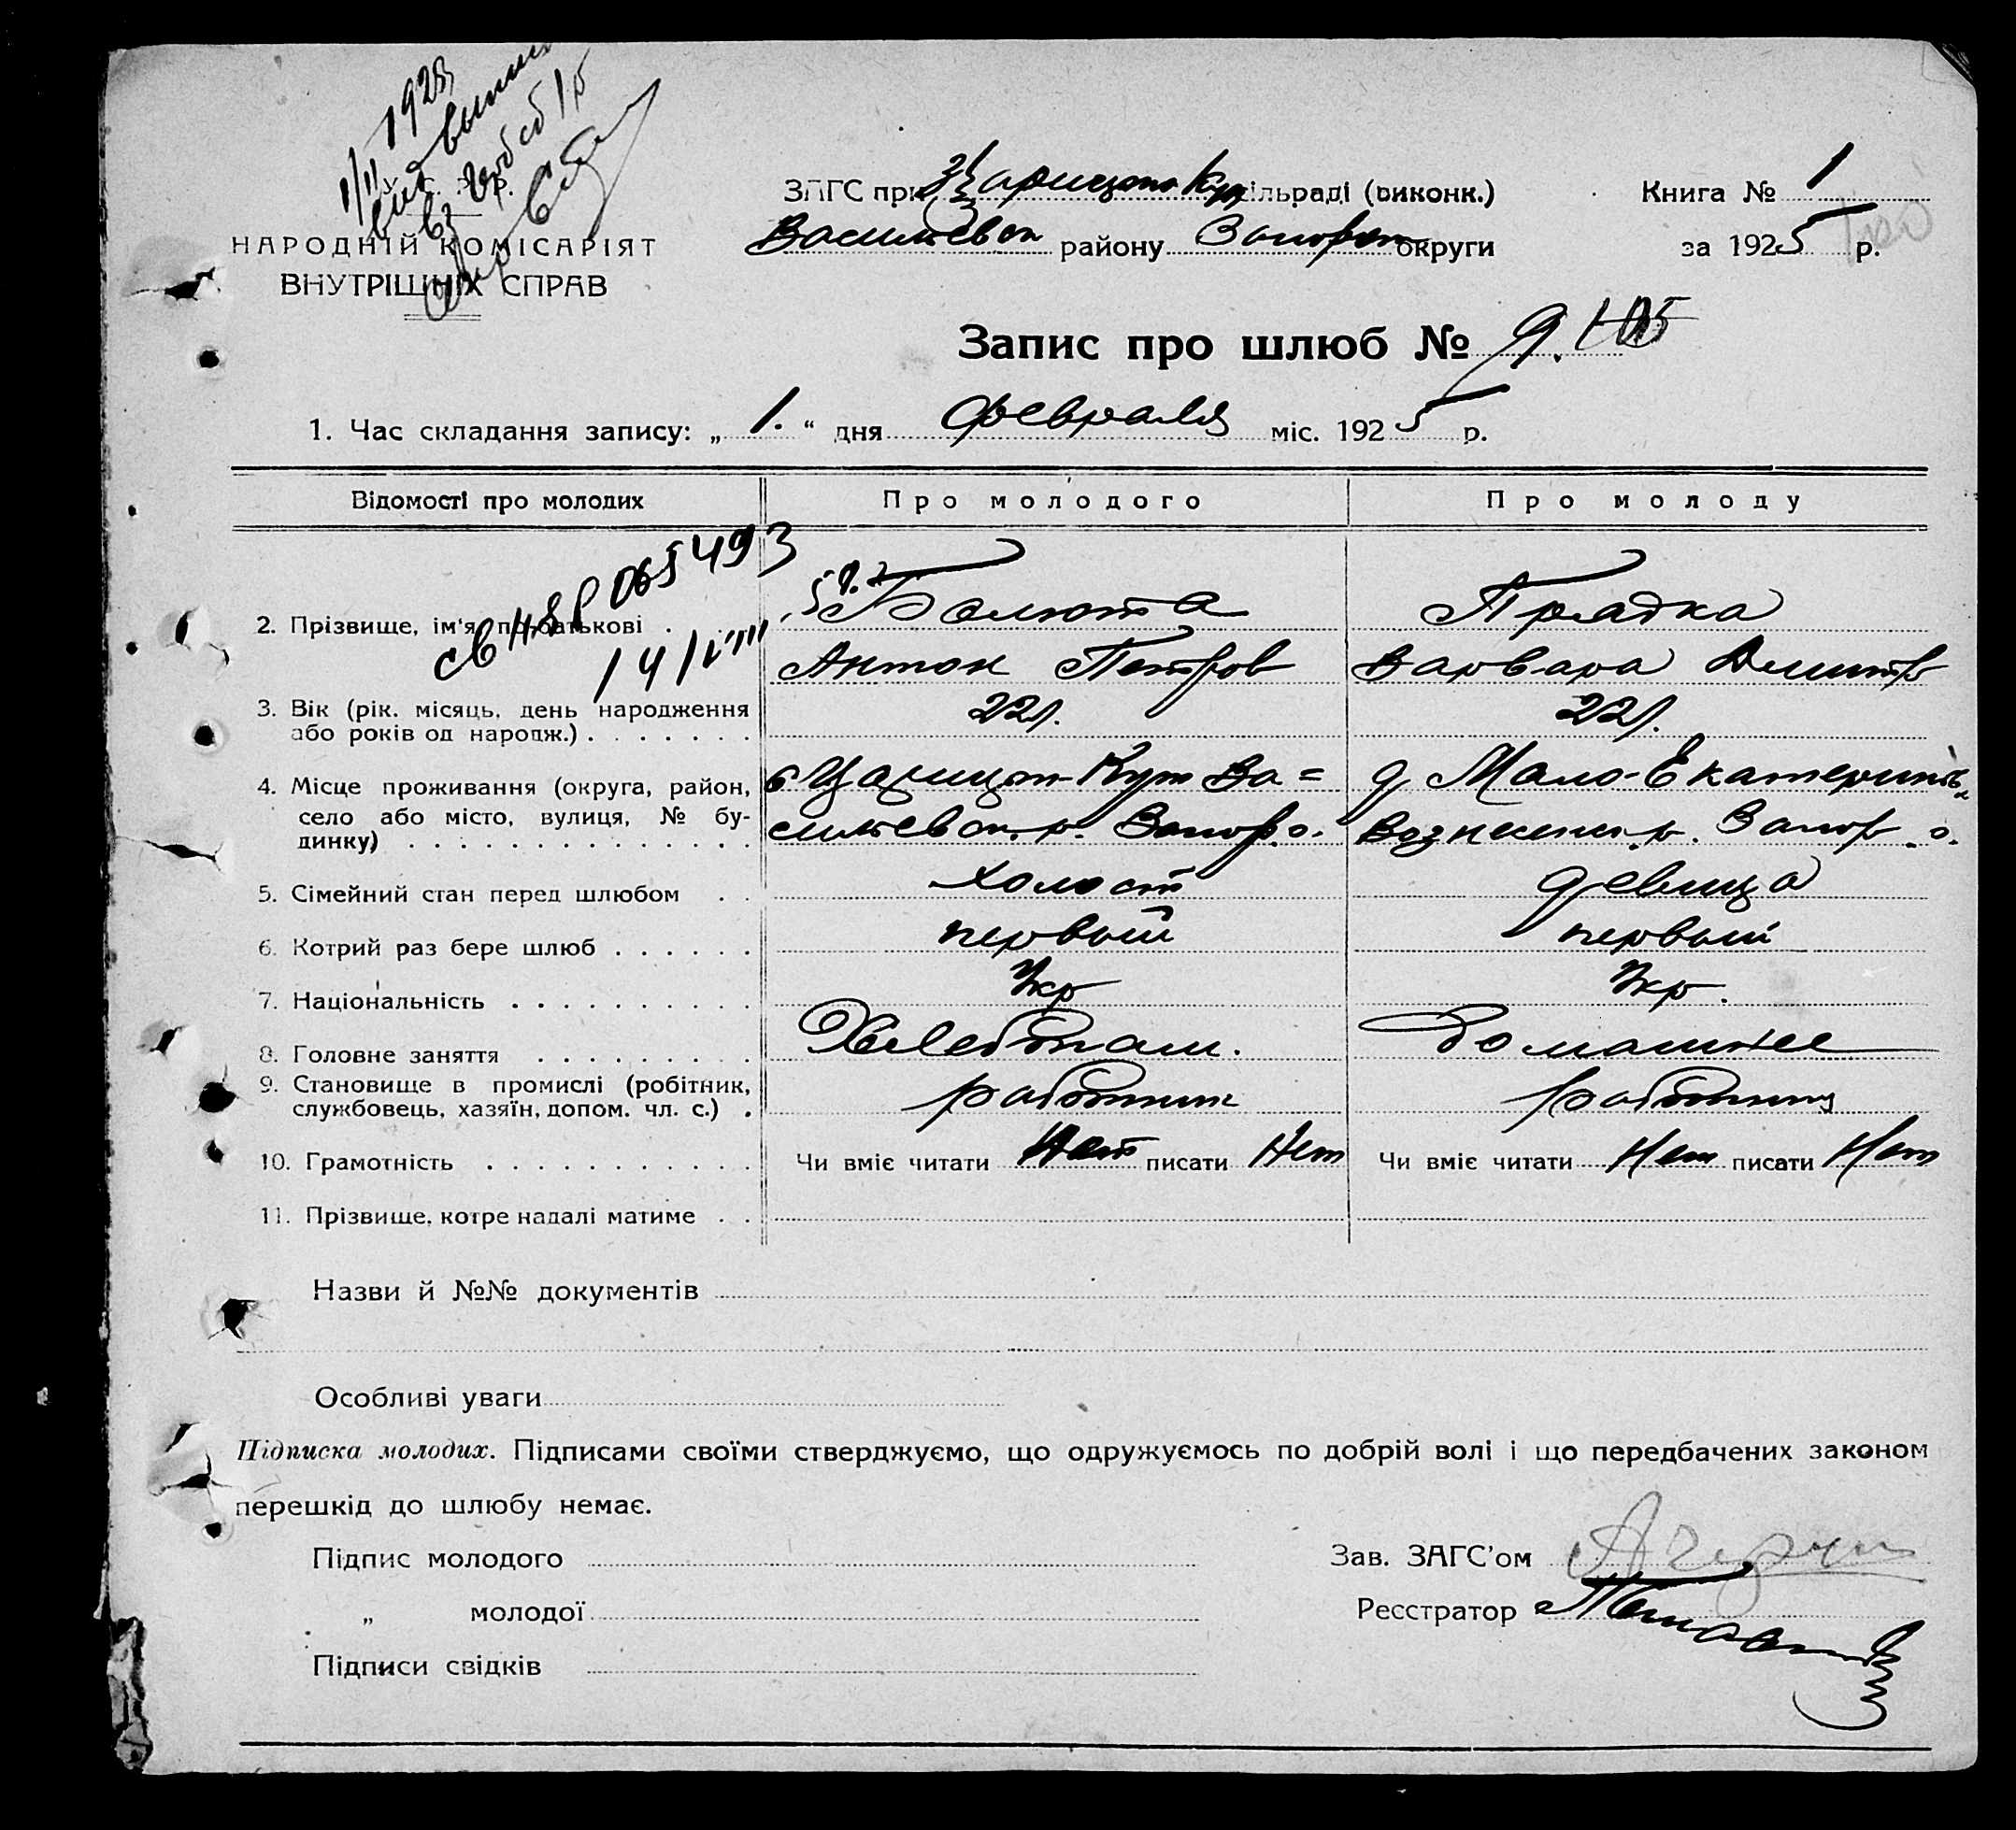 1/II 1925
У. С. Р. Р.
НАРОДНІЙ КОМІСАРІЯТ
ВНУТРІШНІХ СПРАВ
ЗАГС при Царицын Кут сільраді (виконк.)
Васильевск району Запорож округи
Книга № 1
за 1925 р.
Запис про шлюб № 9. 105
1. Час складання запису: „ 1. “ дня февраля міс. 1925 р.
Відомості про молодих Про молодого Про молоду
св НЯР 065493
14/VIII
2. Прізвище, ім'я, по батькові . Болюта Прядка
Антон Петров Варвара Дмитр
3. Вік (рік, місяць, день народження 22 л. 22 л.
або років од народж.) . . . . . . .
4. Місце проживання (округа, район, с Царицын-Кут Ва= д Мало-Екатеринов
село або місто, вулиця, № бу- сильевск. р. Запор. о. Вознесенк. р. Запор. о.
динку) . . . . . . . . . . . . . .
5. Сімейний стан перед шлюбом . . холост девица
6. Котрий раз бере шлюб . . . . . . первый первый
7. Національність . . . . . . . . . . Укр Укр.
8. Головне заняття . . . . . . . . . Хлебопаш. домашнее
9. Становище в промислі (робітник, работник работниц
службовець, хазяїн, допом. чл. с.) .
10. Грамотність . . . . . . . . . . . Чи вміє читати Нет писати Нет Чи вміє читати Нет писати Нет
11. Прізвище, котре надалі матиме . .
Назви й №№ документів
Особливі уваги
Підписка молодих. Підписами своїми стверджуємо, що одружуємось по добрій волі і що передбачених законом
перешкід до шлюбу немає.
Підпис молодого
Зав. ЗАГС’ом
„ молодої
Реєстратор
Підписи свідків